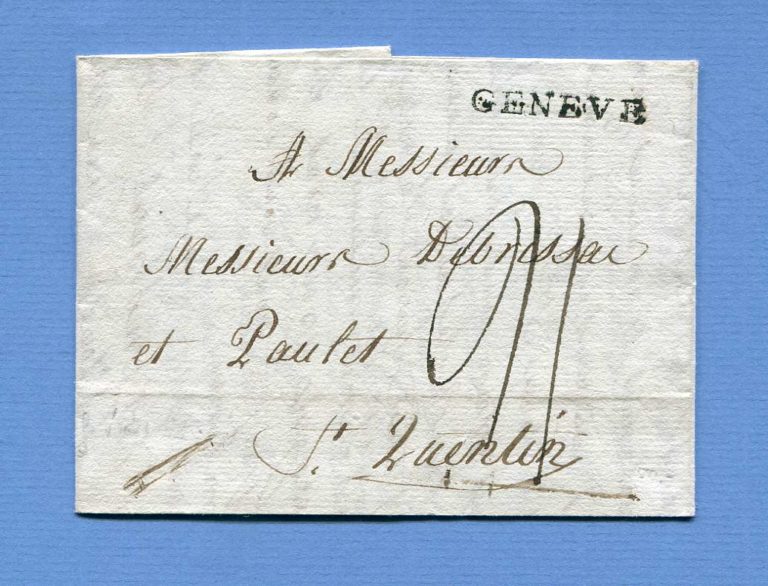 GENEVE
A Messieurs
Messieurs Debressac
et Paulet
St. Quentin